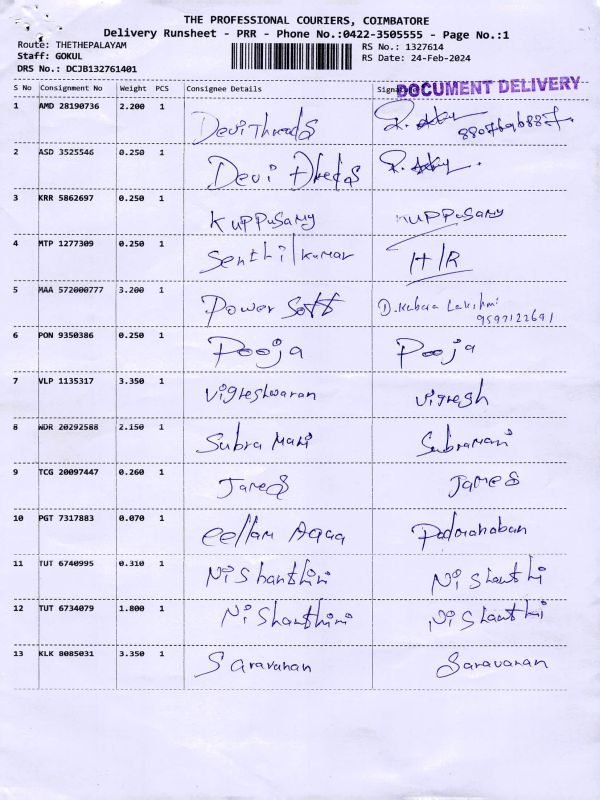 THE PROFESSIONAL COURIERS, COIMBATORE
Delivery Runsheet - PRR - Phone No.:0422-3505555 - Page No.:1
Route: THETHEPALAYAM
Staff: GOKUL
DRS No.: DCJB132761401
RS No.: 1327614
RS Date: 24-Feb-2024
DOCUMENT DELIVERY
S No Consignment No Weight PCS Consignee Details Signature
1 AMD 28190736 2.200 1 Devi Threads
2 ASD 3525546 0.250 1 Devi
3 KRR 5862697 0.250 1 KUPPUSAMY KUPPUSAMY
4 MTP 1277309 0.250 1 Senthil kumar H/R
5 MAA 572000777 3.200 1 Power Soft D. Lakshmi
9597122691
6 PON 9350386 0.250 1 Pooja Pooja
7 VLP 1135317 3.350 1 Vigneshwaran Vignesh
8 WDR 20292588 2.150 1 Subra Mani Subramani
9 TCG 20097447 0.260 1 James James
10 PGT 7317883 0.070 1
11 TUT 6740995 0.310 1 Ni Shanthini Ni Shanthi
12 TUT 6734079 1.800 1 Ni Shanthini Ni Shanthi
13 KLK 8085031 3.350 1 Saravanan Saravanan